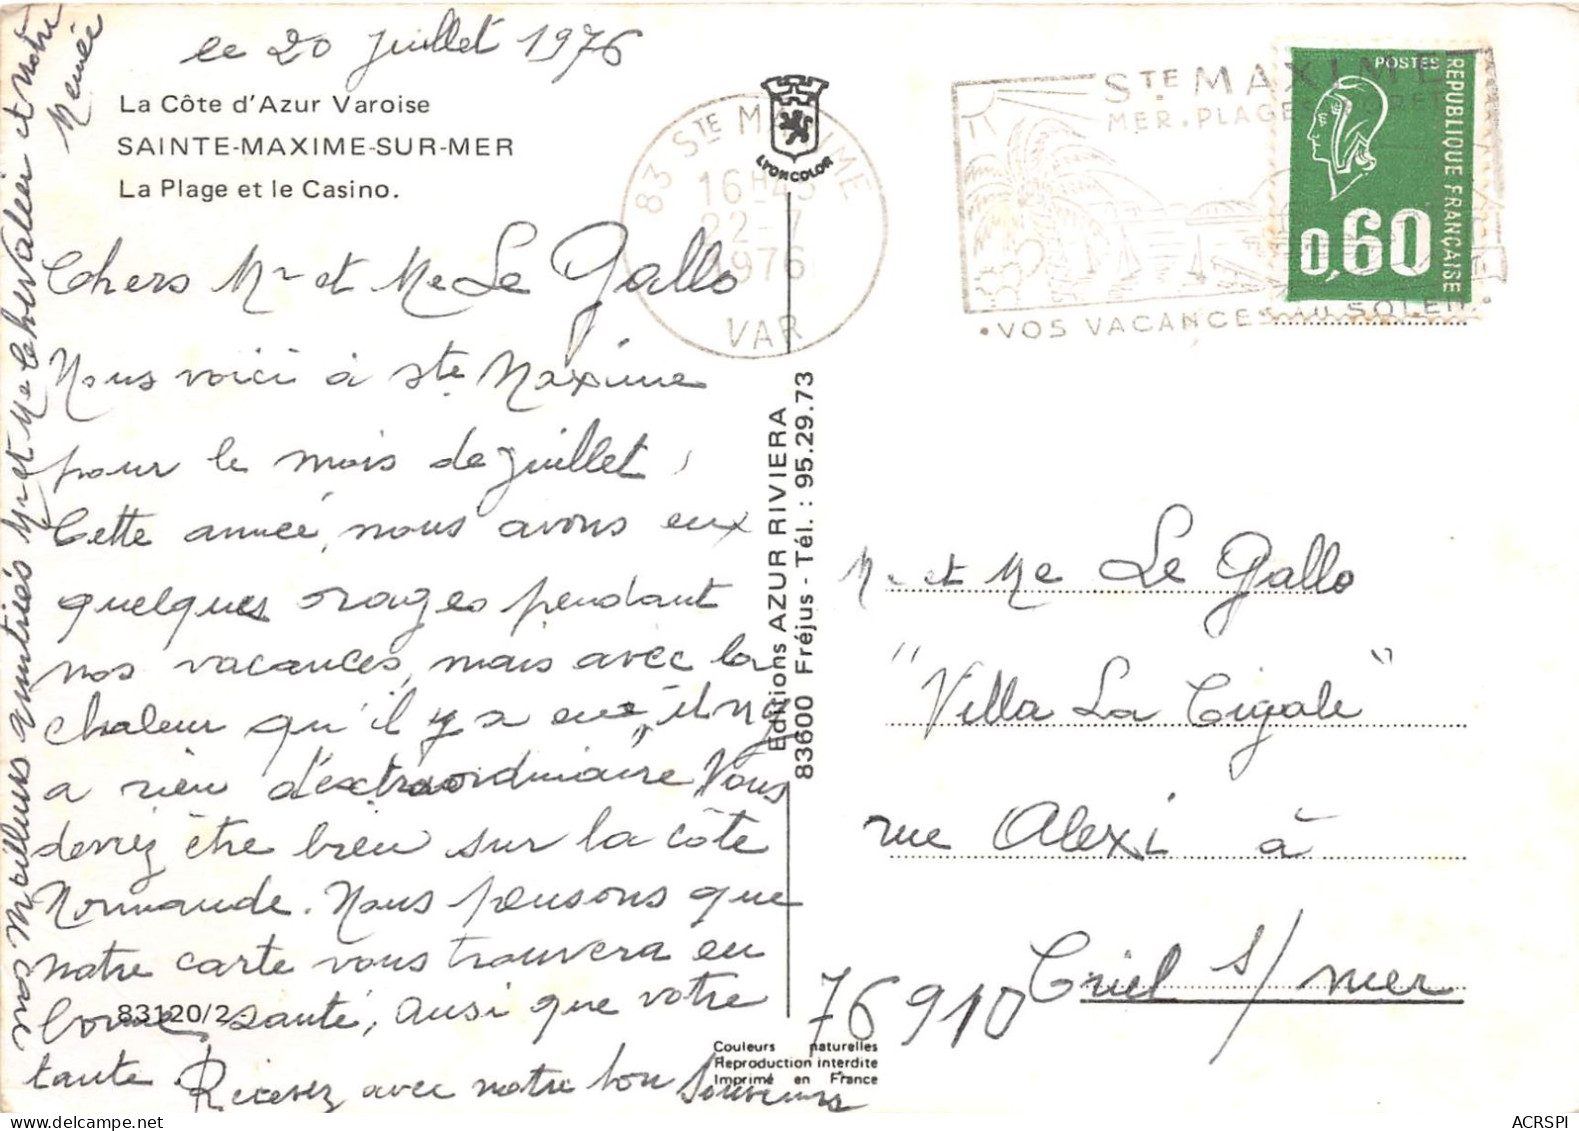 le 20 juillet 1976
La Côte d'Azur Varoise
SAINTE-MAXIME-SUR-MER
La Plage et le Casino.
Chers Mr et Me Le Gallo
Nous voici à Ste Maxime
pour le mois de juillet,
Cette année, nous avons eux
quelques orages pendant
nos vacances, mais avec la
chaleur qu'il y a eue, il n'y
a rien d'extraordinaire Vous
devriez être bien sur la côte
Normande. Nous pensons que
notre carte vous trouvera en
bonne santé, ausi que votre
tante. Recevez avec notre bon souvenirs
nos Meilleurs amitiés Mr et Me Chevalier et Notre
Memée
83120/2
LYONCOLOR
83 STE MAXIME
16H45
22-7
1976
VAR
STE MAXIME
MER. PLAGES FORET
• VOS VACANCES AU SOLEIL •
POSTES
REPUBLIQUE FRANÇAISE
0,60
Editions AZUR RIVIERA
83600 Fréjus - Tél. : 95.29.73
Mr et Me Le Gallo
"Villa La Cigale"
rue Alexi à
76910 Criel s/ mer
Couleurs naturelles
Reproduction interdite
Imprimé en France
ACRSPI